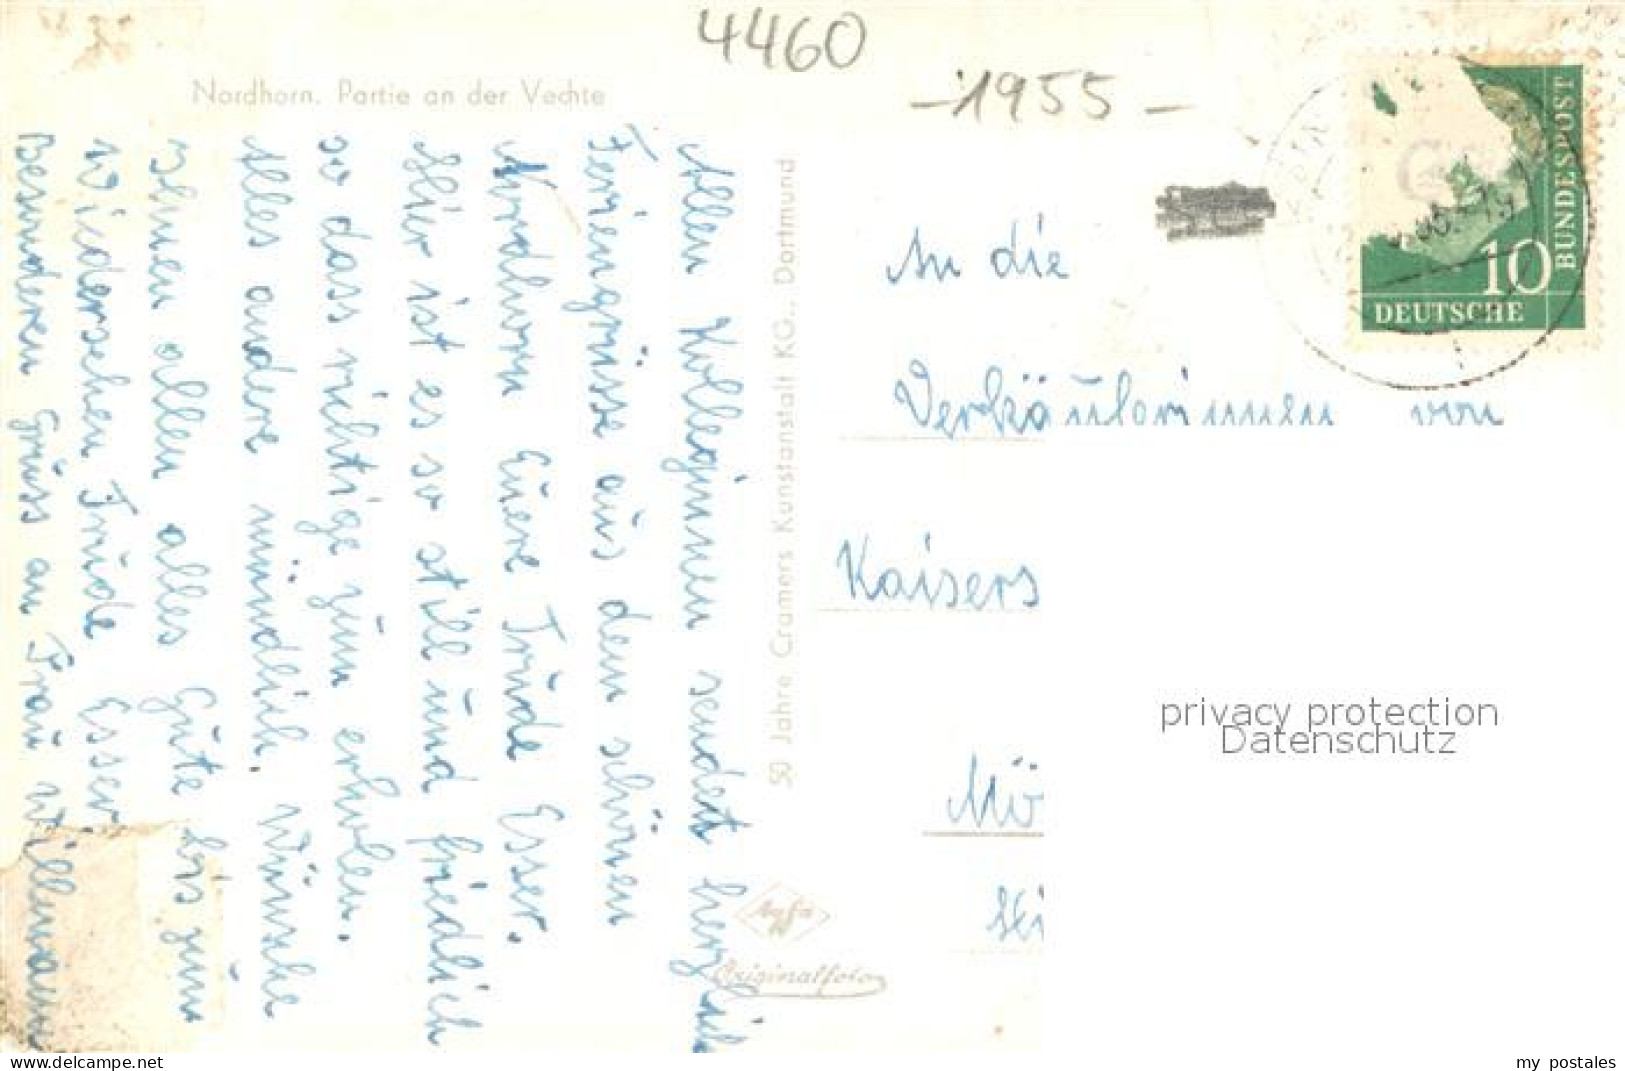 4460
-1955-
Nordhorn. Partie an der Vechte
BUNDESPOST
10
DEUTSCHE
Allen Kolleginnen sendet herzlich
Feriengrüsse aus dem schönen
Nordhorn Euere Trude Esser.
Hier ist es so still und friedlich
so dass richtige zum erholen.
Alles andere mündlich. Wünsche
Ihnen allen alles Gute bis zum
Widersehen Trude Esser
Besonderen Gruss an Frau Willemann
50 Jahre Cramers Kunstanstalt KG., Dortmund
Agfa
Originalfoto
An die
Verkäuferinnen von
Kaisers
Mö
privacy protection
Datenschutz
www.delcampe.net
my postales